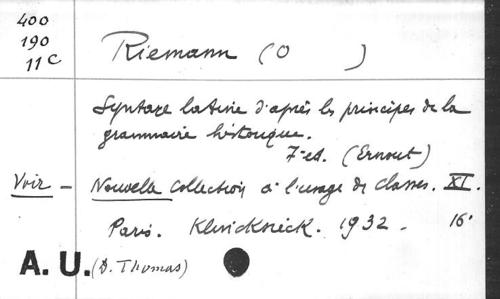 400
190
11 C
Riemann (O )
Syntaxe latine d'après les principes de la
grammaire historique.
7e ed. (Ernout)
Voir - Nouvelle Collection à l'usage de classes. XI.
Paris. Klincksieck. 1932. 16°
A. U. (D. Thomas)